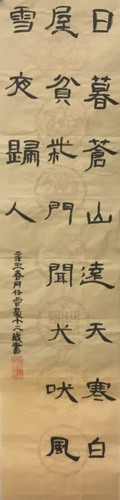 日暮蒼山遠天寒白
屋貧柴門聞犬吠風
雪夜歸人